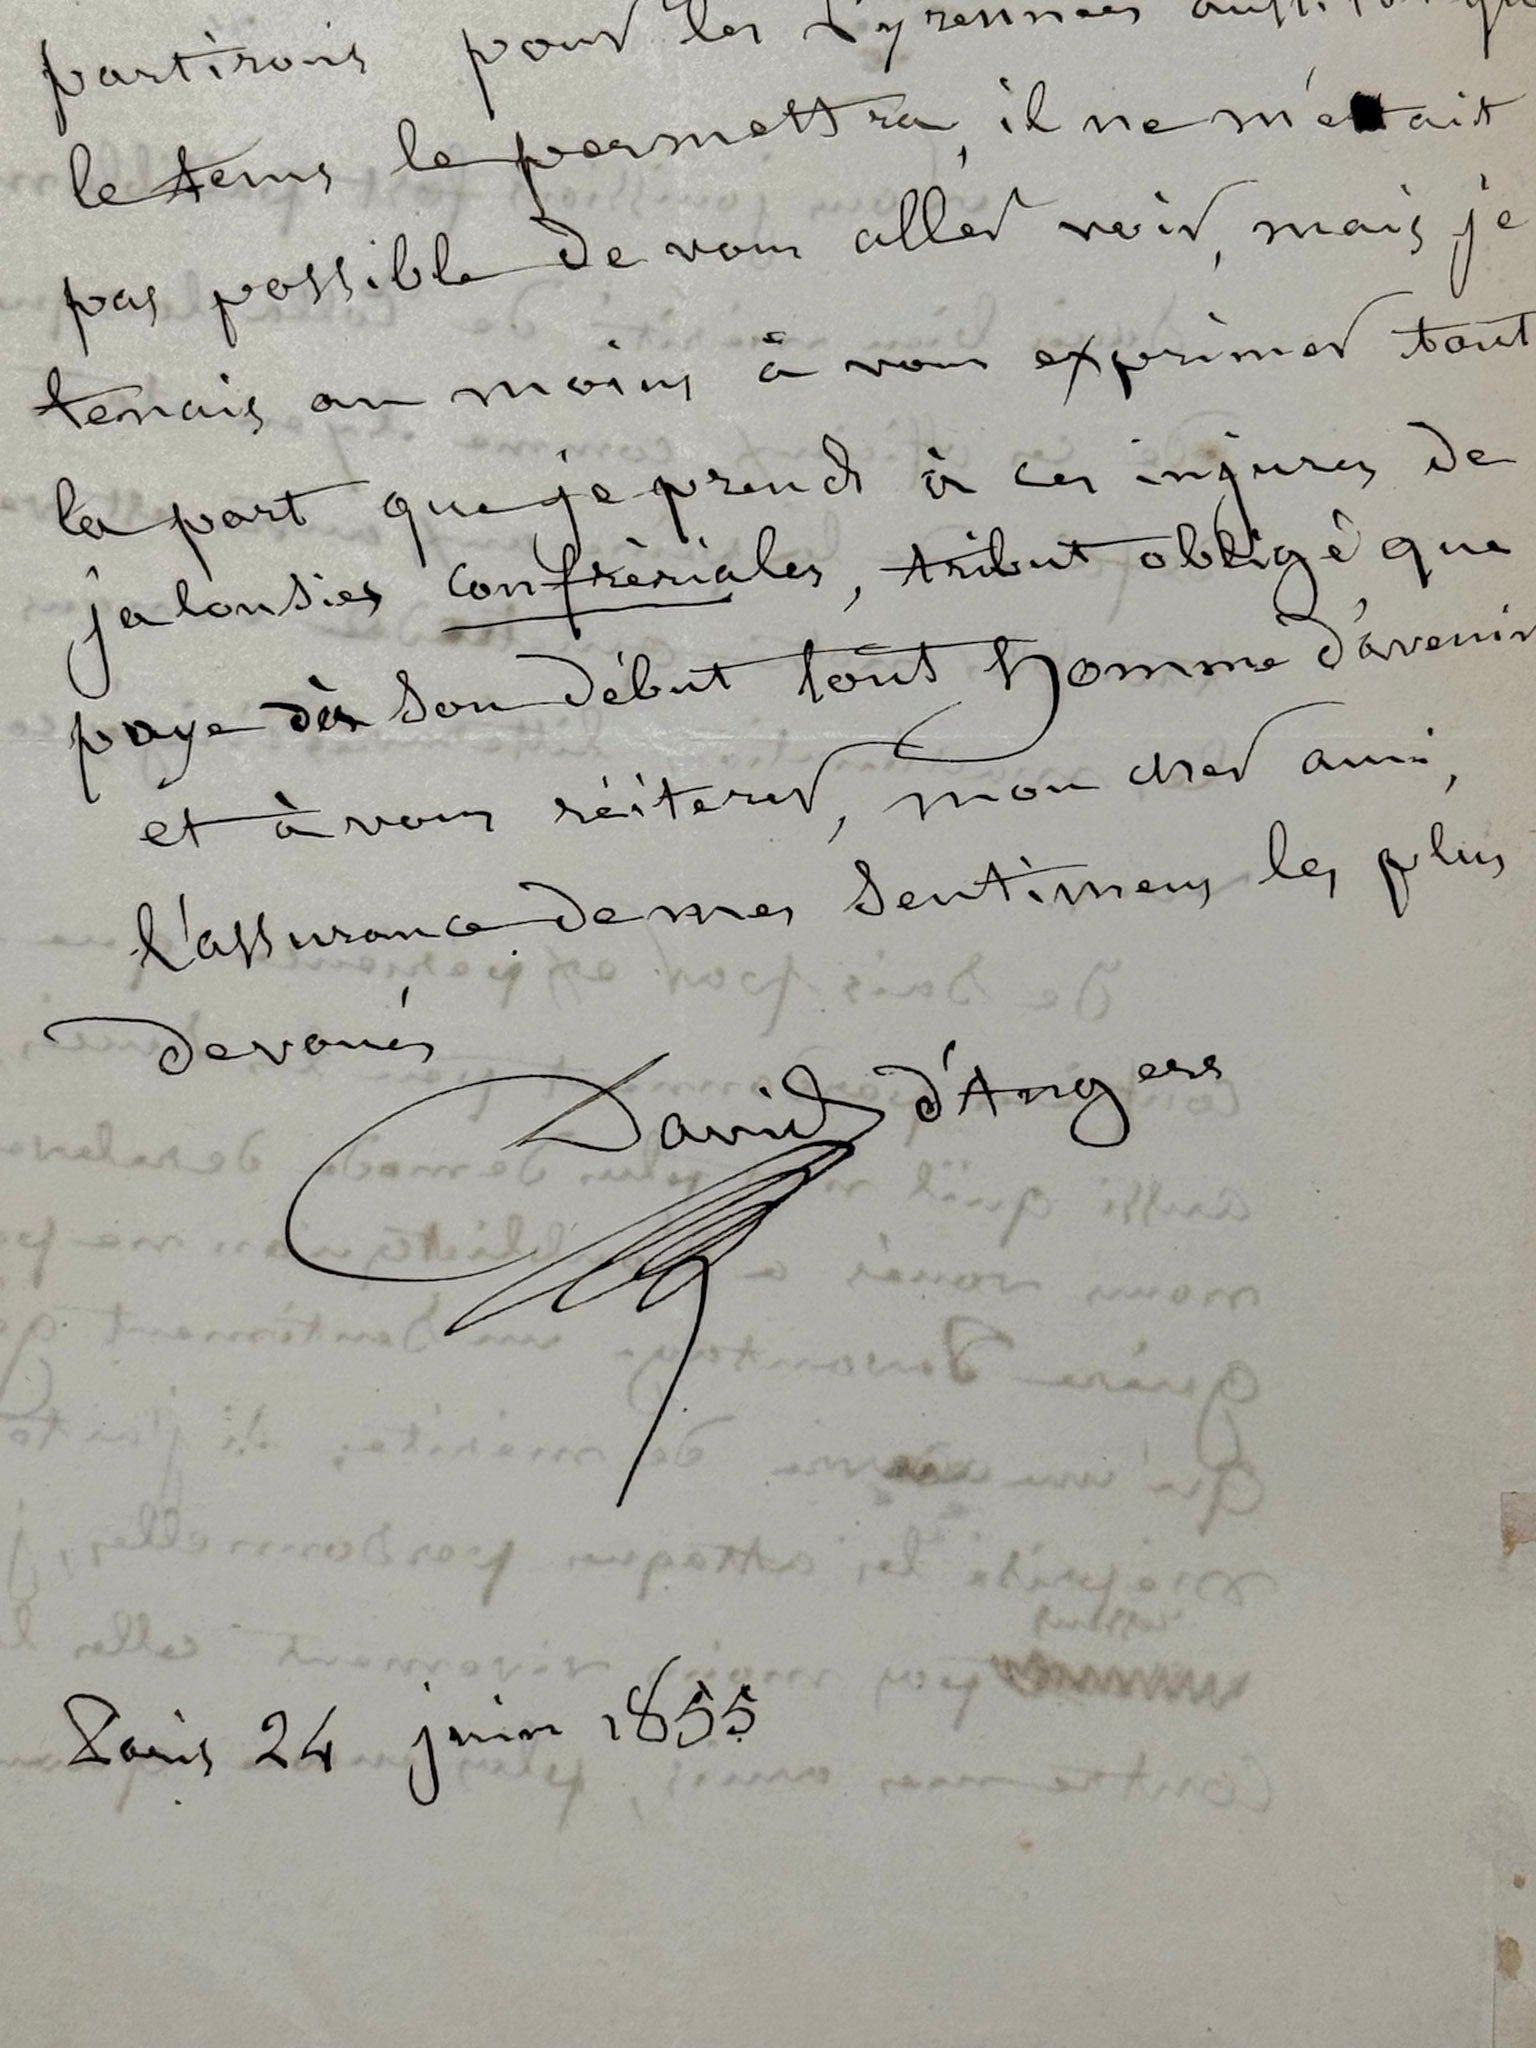 partirons pour les Pyrennées aussitôt que
le tems le permettra, il ne m'était
pas possible de vous aller voir, mais je
tenais au moins à vous exprimer tout
la part que je prends à ces injures de
jalousies confrèriales, tribut obligé que
paye dès son début tout homme d'avenir
et à vous réiterer, mon cher ami,
l'assurance de mes sentimens les plus
devoués
David d'Angers
Paris 24 juin 1855